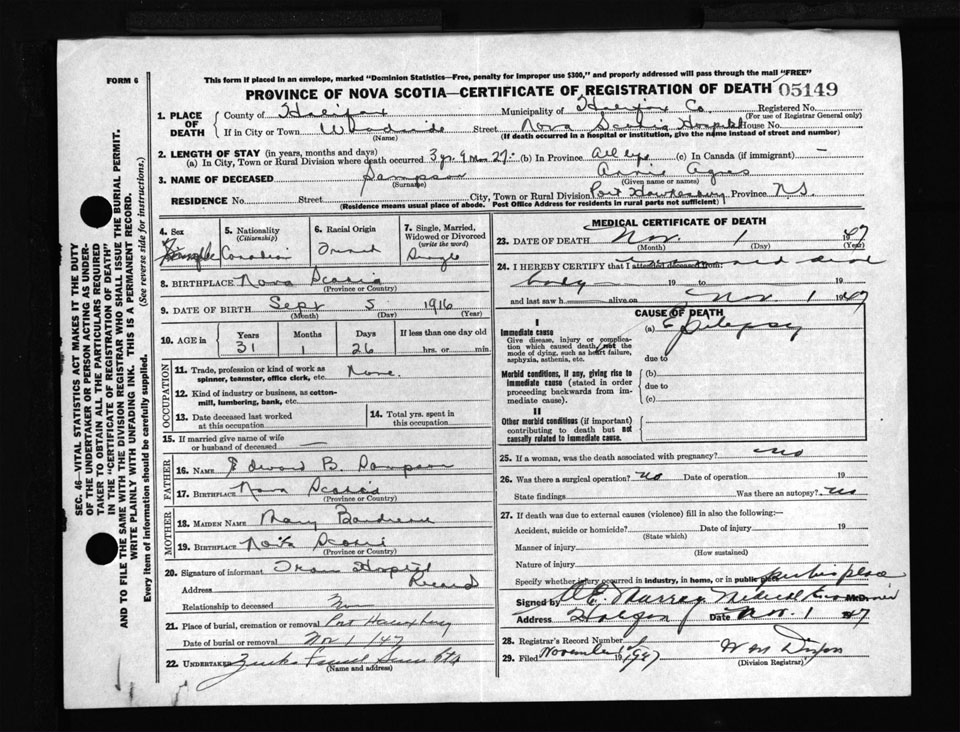 FORM 6
This form if placed in an envelope, marked "Dominion Statistics—Free, penalty for improper use $300," and properly addressed will pass through the mail "FREE"
PROVINCE OF NOVA SCOTIA—CERTIFICATE OF REGISTRATION OF DEATH 05149
SEC. 46—VITAL STATISTICS ACT MAKES IT THE DUTY
OF THE UNDERTAKER OR PERSON ACTING AS UNDER-
TAKER TO OBTAIN ALL THE PARTICULARS REQUIRED
IN THE "CERTIFICATE OF REGISTRATION OF DEATH"
AND TO FILE THE SAME WITH THE DIVISION REGISTRAR WHO SHALL ISSUE THE BURIAL PERMIT.
WRITE PLAINLY WITH UNFADING INK. THIS IS A PERMANENT RECORD.
Every item of information should be carefully supplied. (See reverse side for instructions.)
1. PLACE OF DEATH
County of Halifax Municipality of Halifax Co Registered No.
(For use of Registrar General only)
If in City or Town Woodside Street Nova Scotia Hospital House No.
(Name) (If death occurred in a hospital or institution, give the name instead of street and number)
2. LENGTH OF STAY (in years, months and days)
(a) In City, Town or Rural Division where death occurred 3 yr. 9 mon 27. (b) In Province All life (c) In Canada (if immigrant) —
3. NAME OF DECEASED Sampson Annie Agnes
(Surname) (Given name or names)
RESIDENCE No. Street City, Town or Rural Division Port Hawkesbury Province N.S.
(Residence means usual place of abode. Post Office Address for residents in rural parts not sufficient)
4. Sex Female
5. Nationality (Citizenship) Canadian
6. Racial Origin French
7. Single, Married, Widowed or Divorced (write the word) Single
8. BIRTHPLACE Nova Scotia
(Province or Country)
9. DATE OF BIRTH Sept 5 1916
(Month) (Day) (Year)
10. AGE in Years Months Days If less than one day old
31 1 26 hrs. or min.
OCCUPATION
11. Trade, profession or kind of work as
spinner, teamster, office clerk, etc. None.
12. Kind of industry or business, as cotton-
mill, lumbering, bank, etc.
13. Date deceased last worked
at this occupation
14. Total yrs. spent in
this occupation
15. If married give name of wife
or husband of deceased —
FATHER
16. NAME Edward B. Sampson
17. BIRTHPLACE Nova Scotia
(Province or Country)
MOTHER
18. MAIDEN NAME Mary Boudreau
19. BIRTHPLACE Nova Scotia
(Province or Country)
20. Signature of informant From Hospital
Records
Address
Relationship to deceased
21. Place of burial, cremation or removal Port Hawkesbury
Date of burial or removal Nov 1/47
22. UNDERTAKER
(Name and address)
MEDICAL CERTIFICATE OF DEATH
23. DATE OF DEATH Nov. 1 1947
(Month) (Day) (Year)
24. I HEREBY CERTIFY that I attended deceased from: dead
body 19 to 19
and last saw h alive on Nov 1 1947
CAUSE OF DEATH
I
Immediate cause (a) Epilepsy
Give disease, injury or complica-
tion which caused death, not the
mode of dying, such as heart failure,
asphyxia, asthenia, etc. due to
Morbid conditions, if any, giving rise to (b)
immediate cause (stated in order due to
proceeding backwards from im-
mediate cause). (c)
II
Other morbid conditions (if important)
contributing to death but not
causally related to immediate cause.
25. If a woman, was the death associated with pregnancy? no
26. Was there a surgical operation? no Date of operation 19
State findings Was there an autopsy? no
27. If death was due to external causes (violence) fill in also the following:—
Accident, suicide or homicide? Date of injury 19
(State which)
Manner of injury
(How sustained)
Nature of injury
Specify whether injury occurred in industry, in home, or in public place public place
Signed by Murray Medical Examiner M.D.
Address Halifax Date Nov. 1 1947
28. Registrar's Record Number
29. Filed November 1 1947
(Division Registrar)